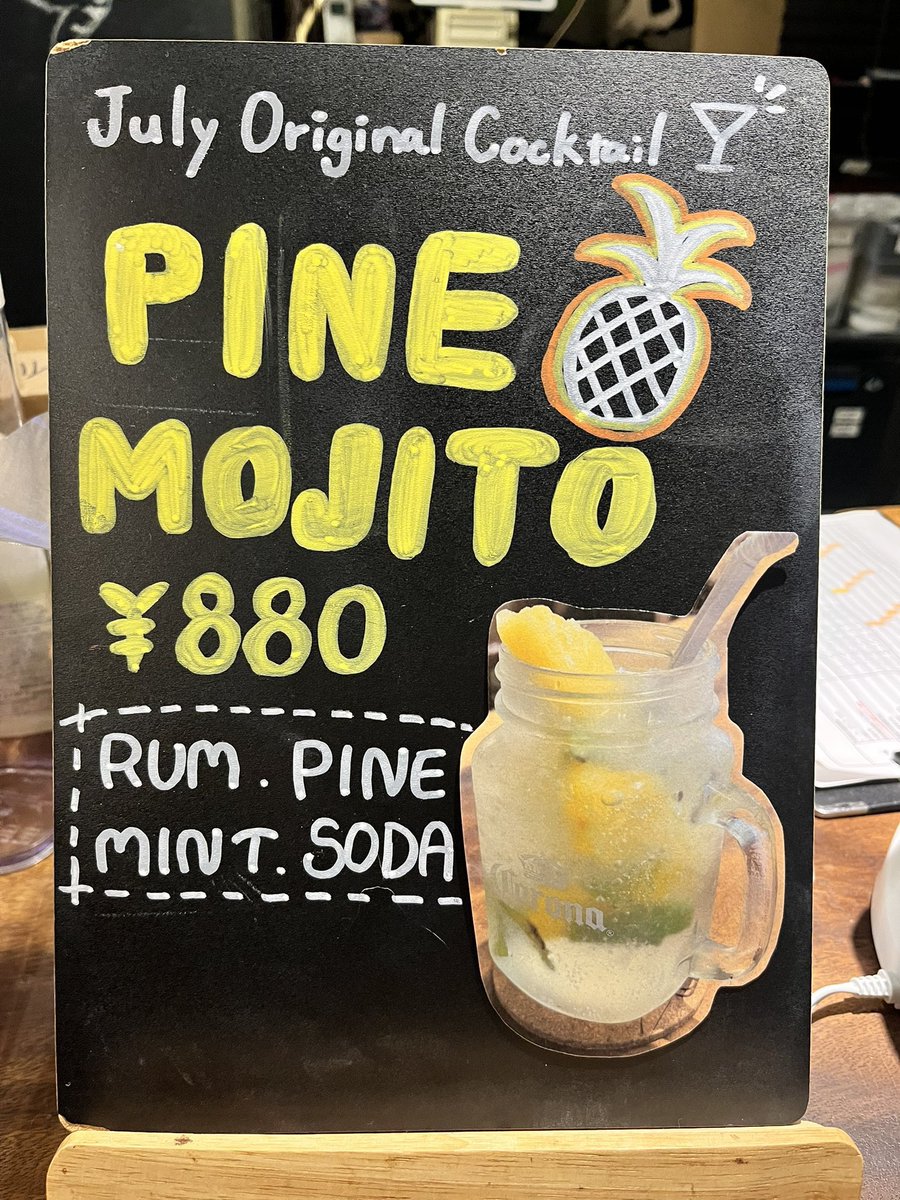 July Original Cocktail
PINE
MOJITO
¥880
RUM. PINE
MINT. SODA
Corona